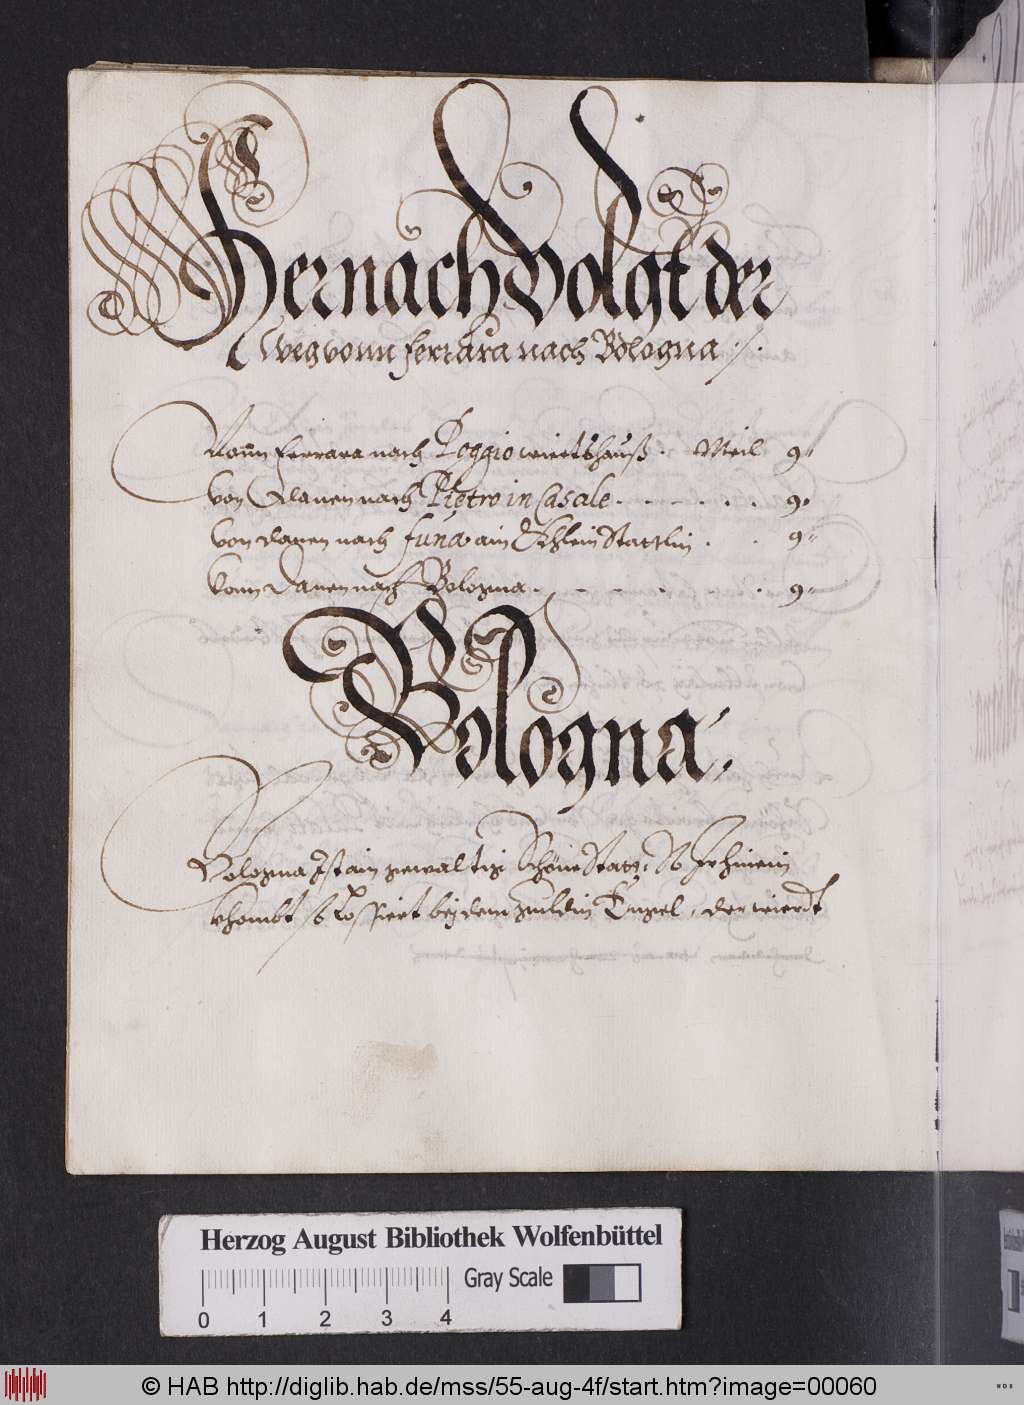 Hernach Volgt der
Weg vonn ferrara nach Bologna ./.
Vonn Ferrara nach Poggio wirtshauß . Meil 9
von Danen nach Pietro in Casale . . . . . . 9
von danen nach funa ain Khlein Stattlin . . 9
Vonn Danen nach Bologna . . . . . . 9
Bologna
Bologna Ist ain gewaltige Schöne Statt, So Ir hinein
khombt so Losiert bej dem guldin Engel, der wierdt
Herzog August Bibliothek Wolfenbüttel
Gray Scale
0 1 2 3 4
© HAB http://diglib.hab.de/mss/55-aug-4f/start.htm?image=00060